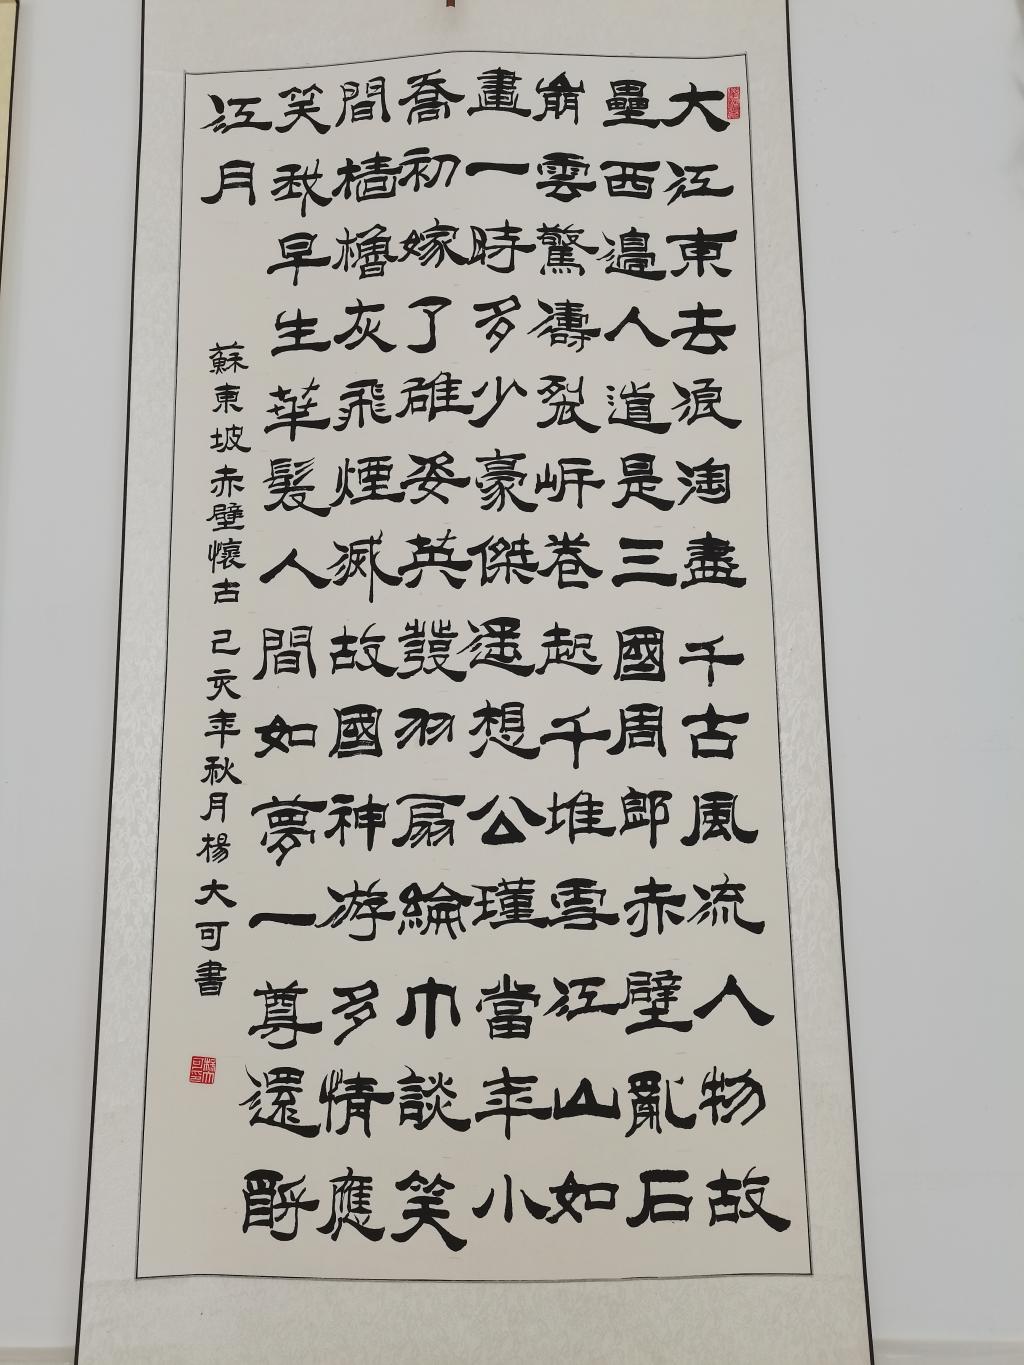 大江東去浪淘盡千古風流人物故
壘西邊人道是三國周郎赤壁亂石
崩雲驚濤裂岸卷起千堆雪江山如
畫一時多少豪傑遥想公瑾當年小
喬初嫁了雄姿英發羽扇綸巾談笑
間檣櫓灰飛煙滅故國神游多情應
笑我早生華髮人間如夢一尊還酹
江月
蘇東坡赤壁懷古己亥年秋月楊大可書